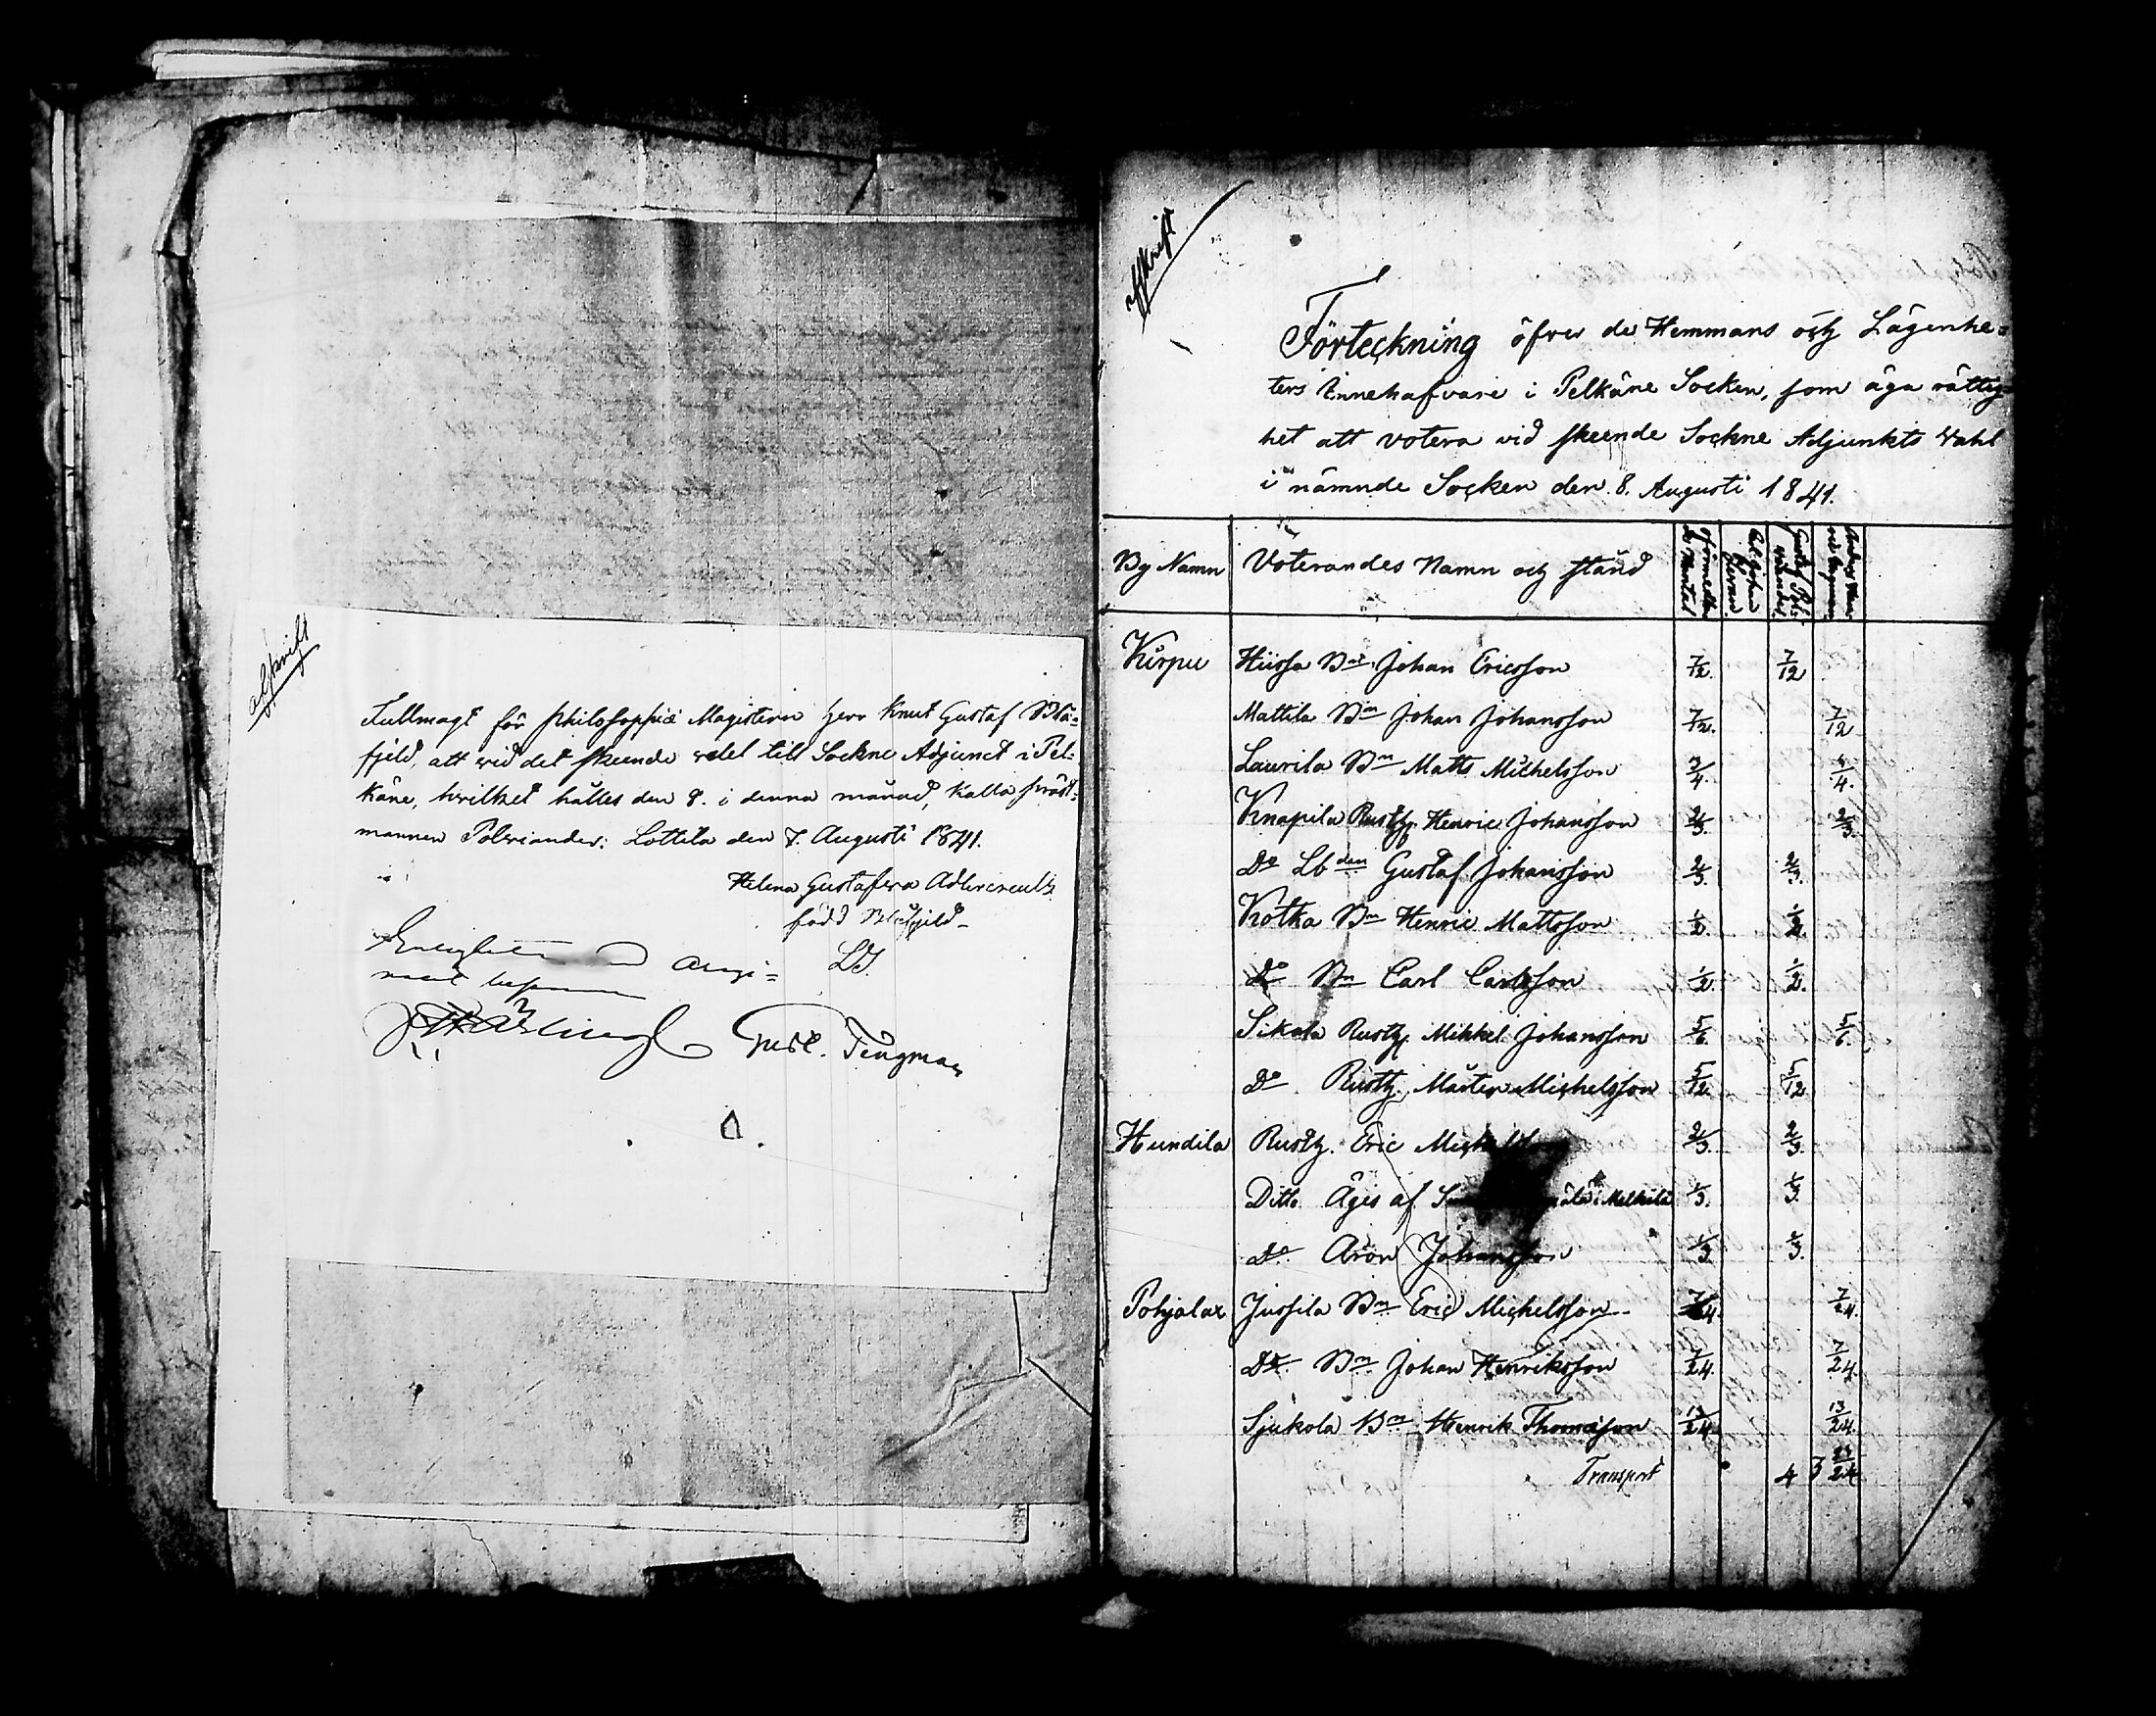 afskrift
Fullmagt för philosophiæ Magistern herr Knut Gustaf Blå-
fjeld, att vid det skeende valet till Sockne Adjunct i Pel-
käne, hvilket hålles den 8. i denna månad, kalla präst-
mannen Polviander. Lottila den 7. Augusti 1841.
Helena Gustafva Adlercreutz
född Blåfjeld
LS.
Gust. Tengman
Afskrift
Förteckning öfver de Hemmans och Lägenhe-
ters Innehafvare i Pelkäne Socken, som äga rättig-
het att votera vid skeende Sockne Adjunkts Wahl
i nämnde Socken den 8. Augusti 1841.
By Namn Voterandes Namn och stånd
Kirpu Hiissa Bn Johan Ericsson 7/12. 7/12
Mattila Bn Johan Johansson 7/12. 7/12
Laurila Bn Matts Michelsson 3/4. 3/4.
Knapila Rusth. Henric Johansson 2/3. 2/3.
Do Lbden Gustaf Johansson 2/3. 2/3.
Kotka Bn Henric Mattsson 1/2. 1/2.
Do Bn Carl Carlsson 1/2. 1/2.
Sikala Rusth. Mikkel Johansson 5/6. 5/6.
Do Rusth. Mårten Michelsson 5/12. 5/12.
Hundila Rusth. Eric 2/3. 2/3.
Ditto Äges af Mälkilä 1/3. 1/3.
Do Aron Johansson 1/3 1/3.
Pohjalax Jussila Bn Eric Michelsson 7/24. 7/24.
Do Bn Johan Henriksson 7/24. 7/24.
Sjukola Bn Henrik Thomasson 13/24. 13/24.
Transport 4 3 23/24